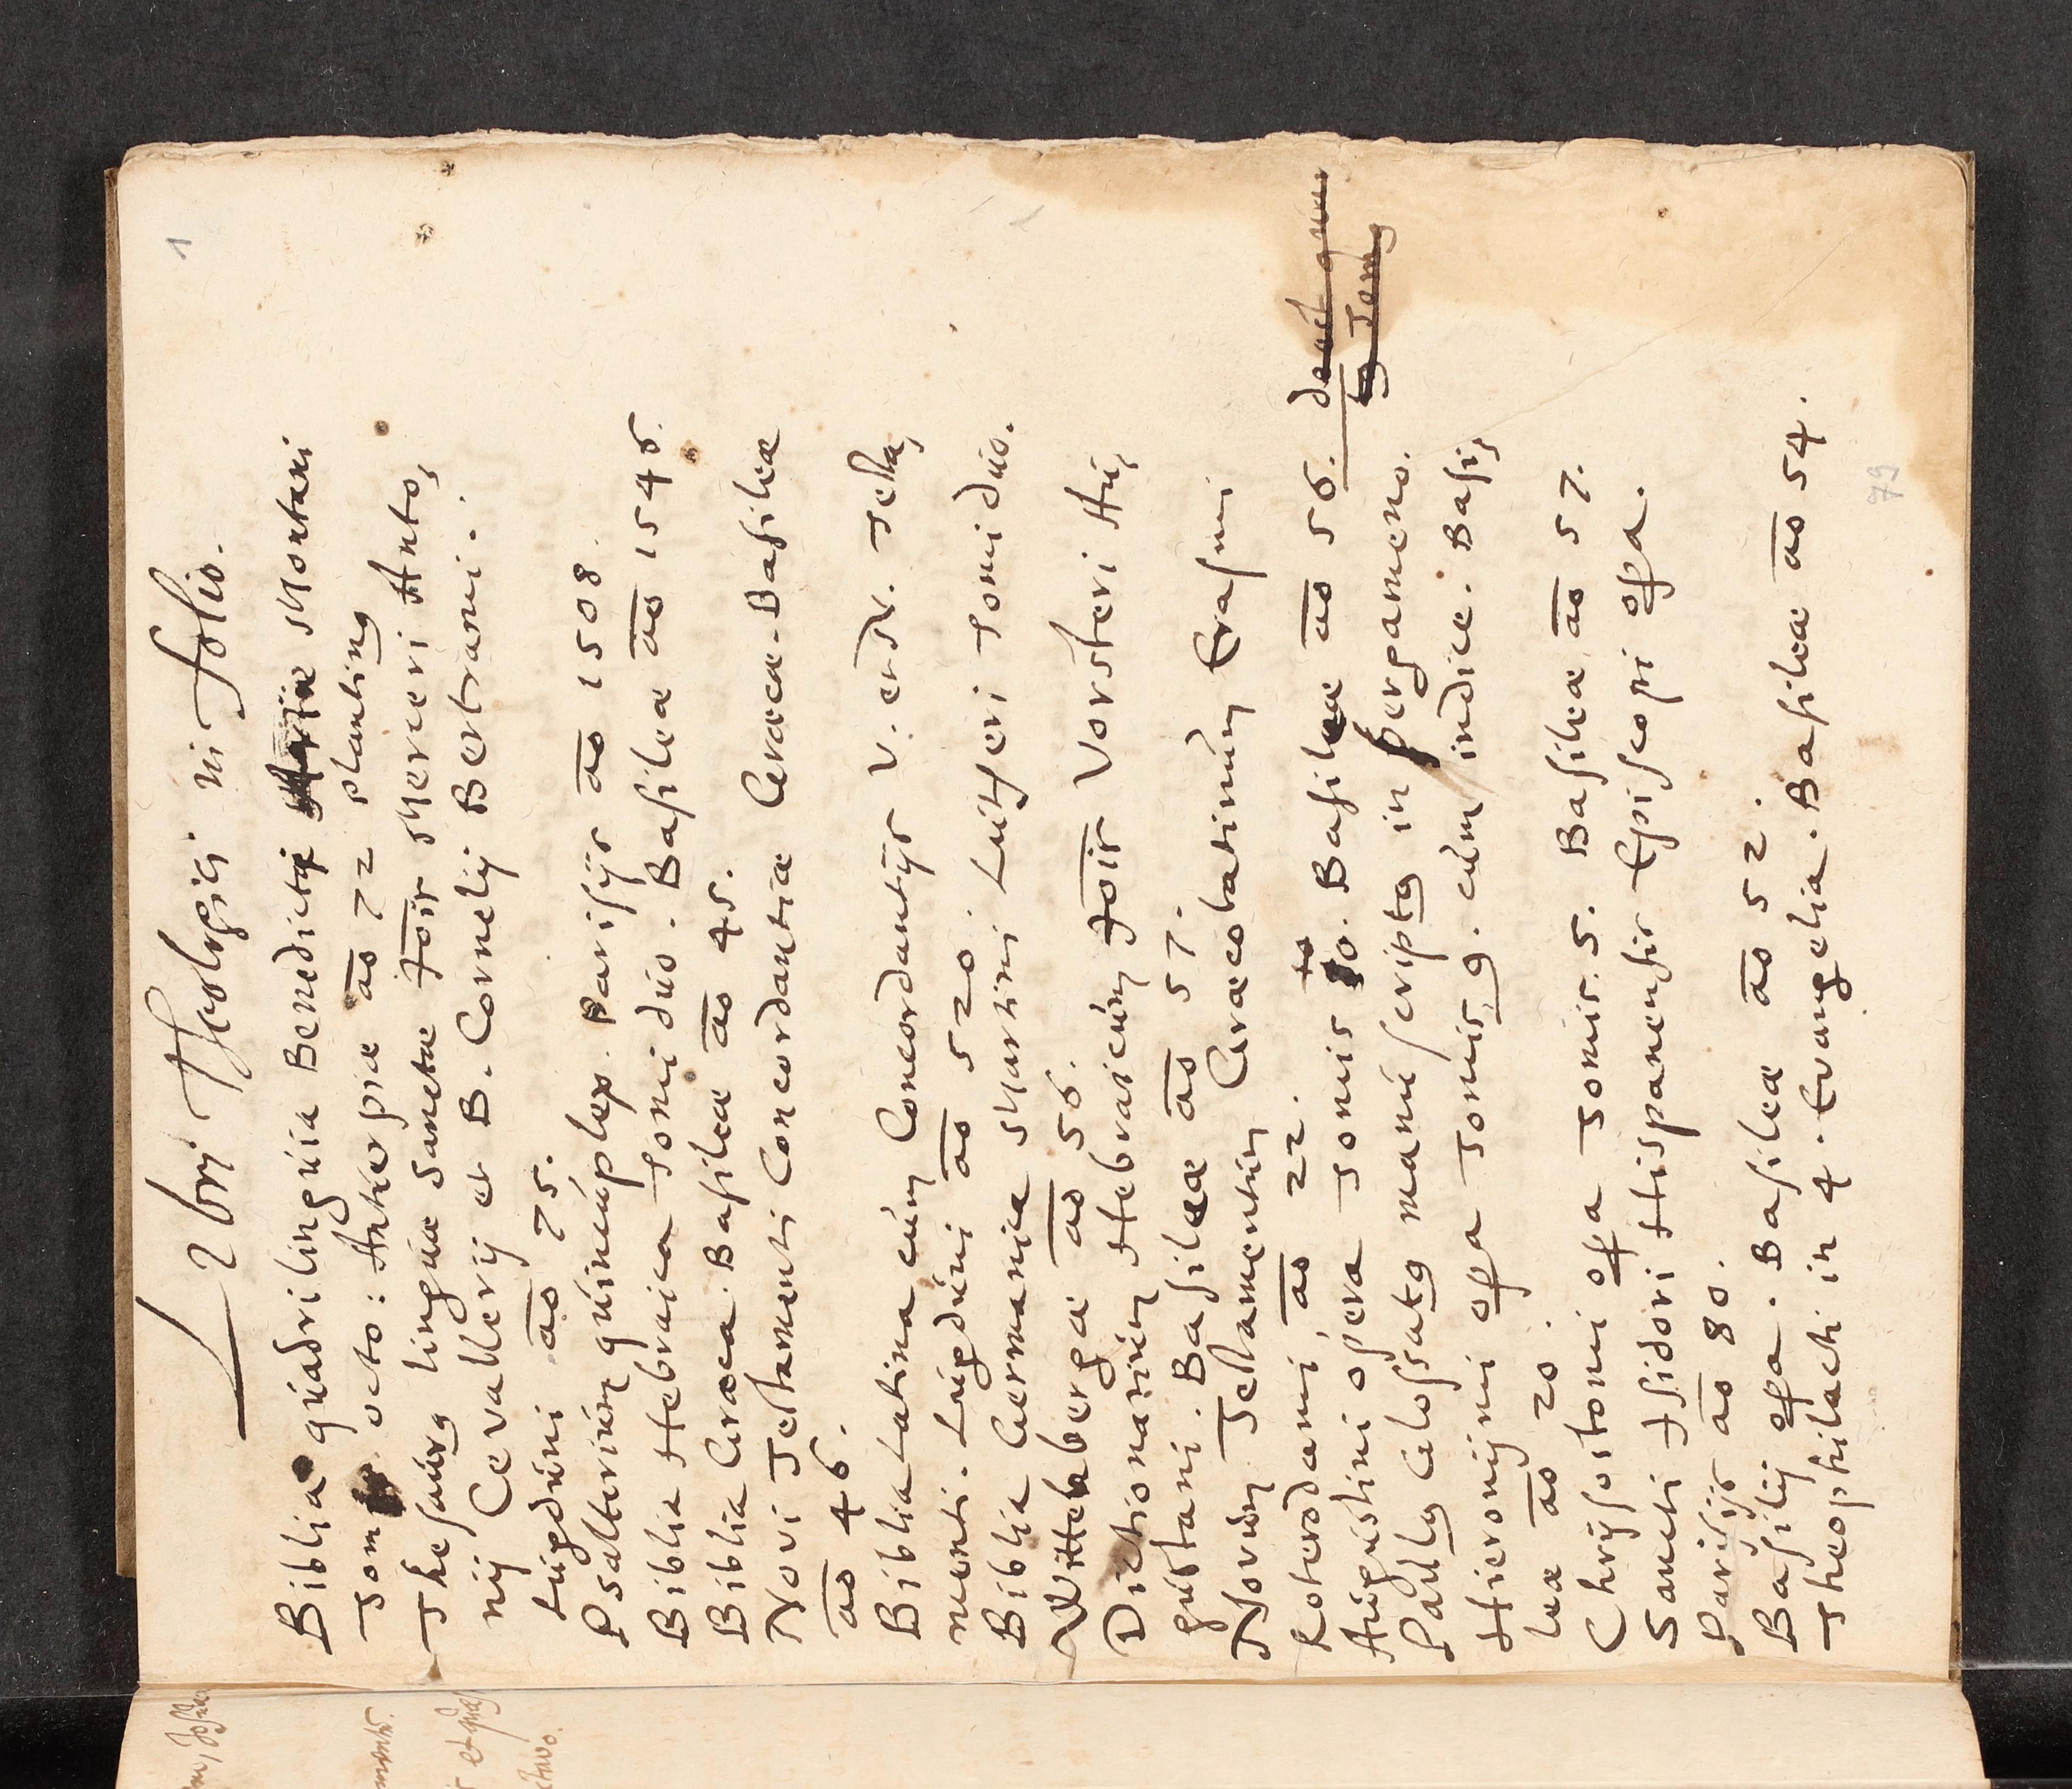 1
Libri Theologici in Folio.
Biblia quadrilinguia Benedicti Ariae Montani
Tom octo: Antverpiae ao 72 plantinus
Thesaurus linguae sanctae Jois Merceri Anto,
nij Cevallerij et B. Cornelij Bertrami.
Lugduni ao 75.
Psalterium quincuplex. Parisijs ao 1508.
Biblia Hebraica Tomi duo. Basileae ao 1546.
Biblia Graeca. Basileae ao 45.
Novi Testamenti Concordantiae Graecae. Basileae
ao 46.
Biblia Latina cum Concordantijs V. et N. Testa,
menti. Lugduni ao 520.
Biblia Germanica Martini Lutheri Tomi duo.
Wittebergae ao 56.
Dictionarium Hebraicum Jois Vorsteri Au,
gustani. Basileae ao 57.
Novum Testamentum Graecolatinum Erasmi
Roterodami ao 22.
Augustini opera Tomis 10. Basileae ao 56. deest
Tomus
Paulus Glossatus manu scriptus in pergameno.
Hieronymi opa Tomis 9. cum indice. Basi,
leae ao 20.
Chrysostomi opa Tomis. 5. Basileae ao 57.
Sancti Isidori Hispanensis Episcopi opa.
Parisijs ao 80.
Basilij opa. Basileae ao 52.
Theophilacti in 4. Evangelia. Basileae ao 54.
79